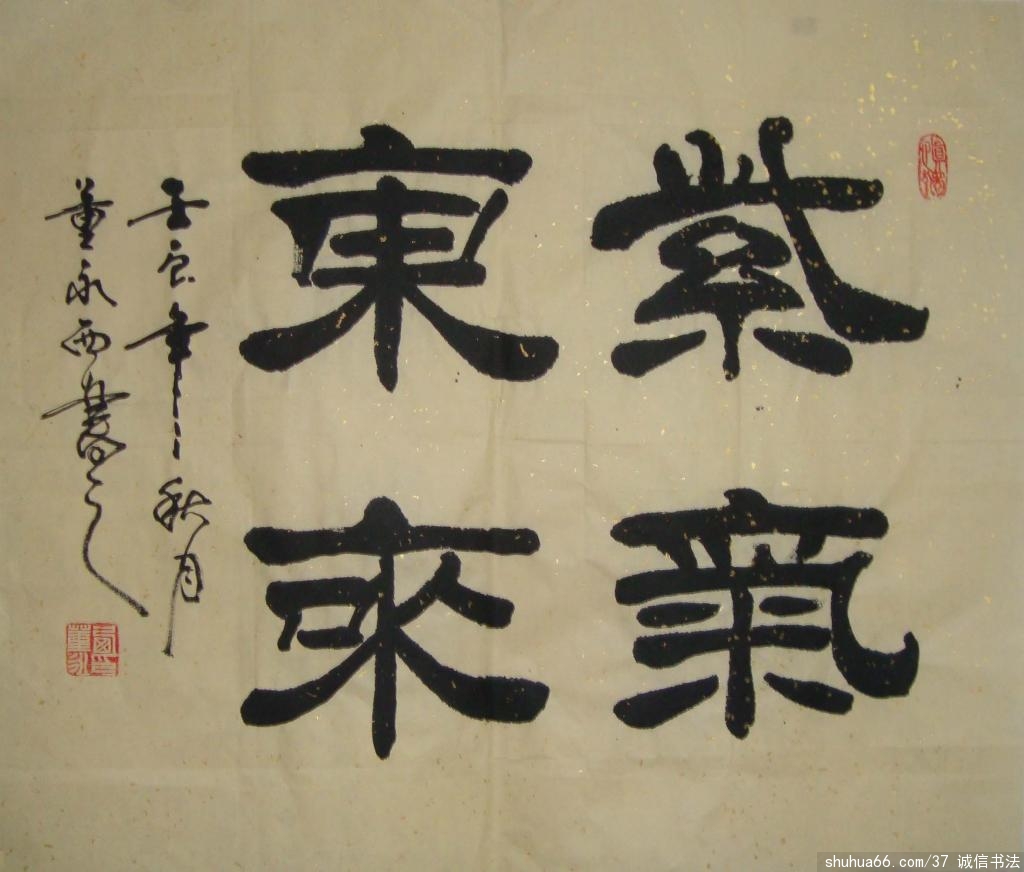 紫氣
東來
壬辰年秋月
董永西書之
shuhua66.com/37 诚信书法